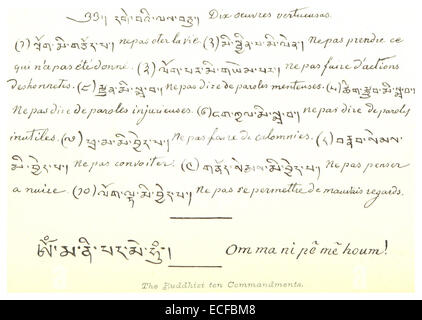 དགེ་བའི་ལས་བཅུ། Dix oeuvres vertueuses.
(༡) སྲོག་མི་གཅོད་པ། ne pas oter la vie. (༢) མི་བྱིན་པ་མི་ལེན། Ne pas prendre ce
qui n'a pas été donné. (༣) ལོག་པར་མི་གཡེམ་པར། ne pas faire d'actions
deshonnetes. (༤) རྫུན་མི་སྨྲ་བ། ne pas dire de paroles menteuses. (༥) ཚིག་རྩུབ་མི་སྨྲ་བ།
Ne pas dire de paroles injurieuses. (༦) ངག་འཁྱལ་མི་སྨྲ་བ། ne pas dire de paroles
inutiles. (༧) ཕྲ་མ་མི་བྱེད་པ། ne pas faire de calomnies. (༨) བརྣབ་སེམས་
མི་བྱེད་པ། ne pas convoiter. (༩) གནོད་སེམས་མི་བྱེད་པ། Ne pas penser
a nuire. (༡༠) ལོག་ལྟ་མི་བྱེད་པ། ne pas se permettre de mauvais regards.
ༀ་མ་ནི་པད་མེ་ཧཱུྃ། Om ma ni pē mē houm!
The Buddhist ten Commandments.
alamy
Image ID: ECFBM8
www.alamy.com